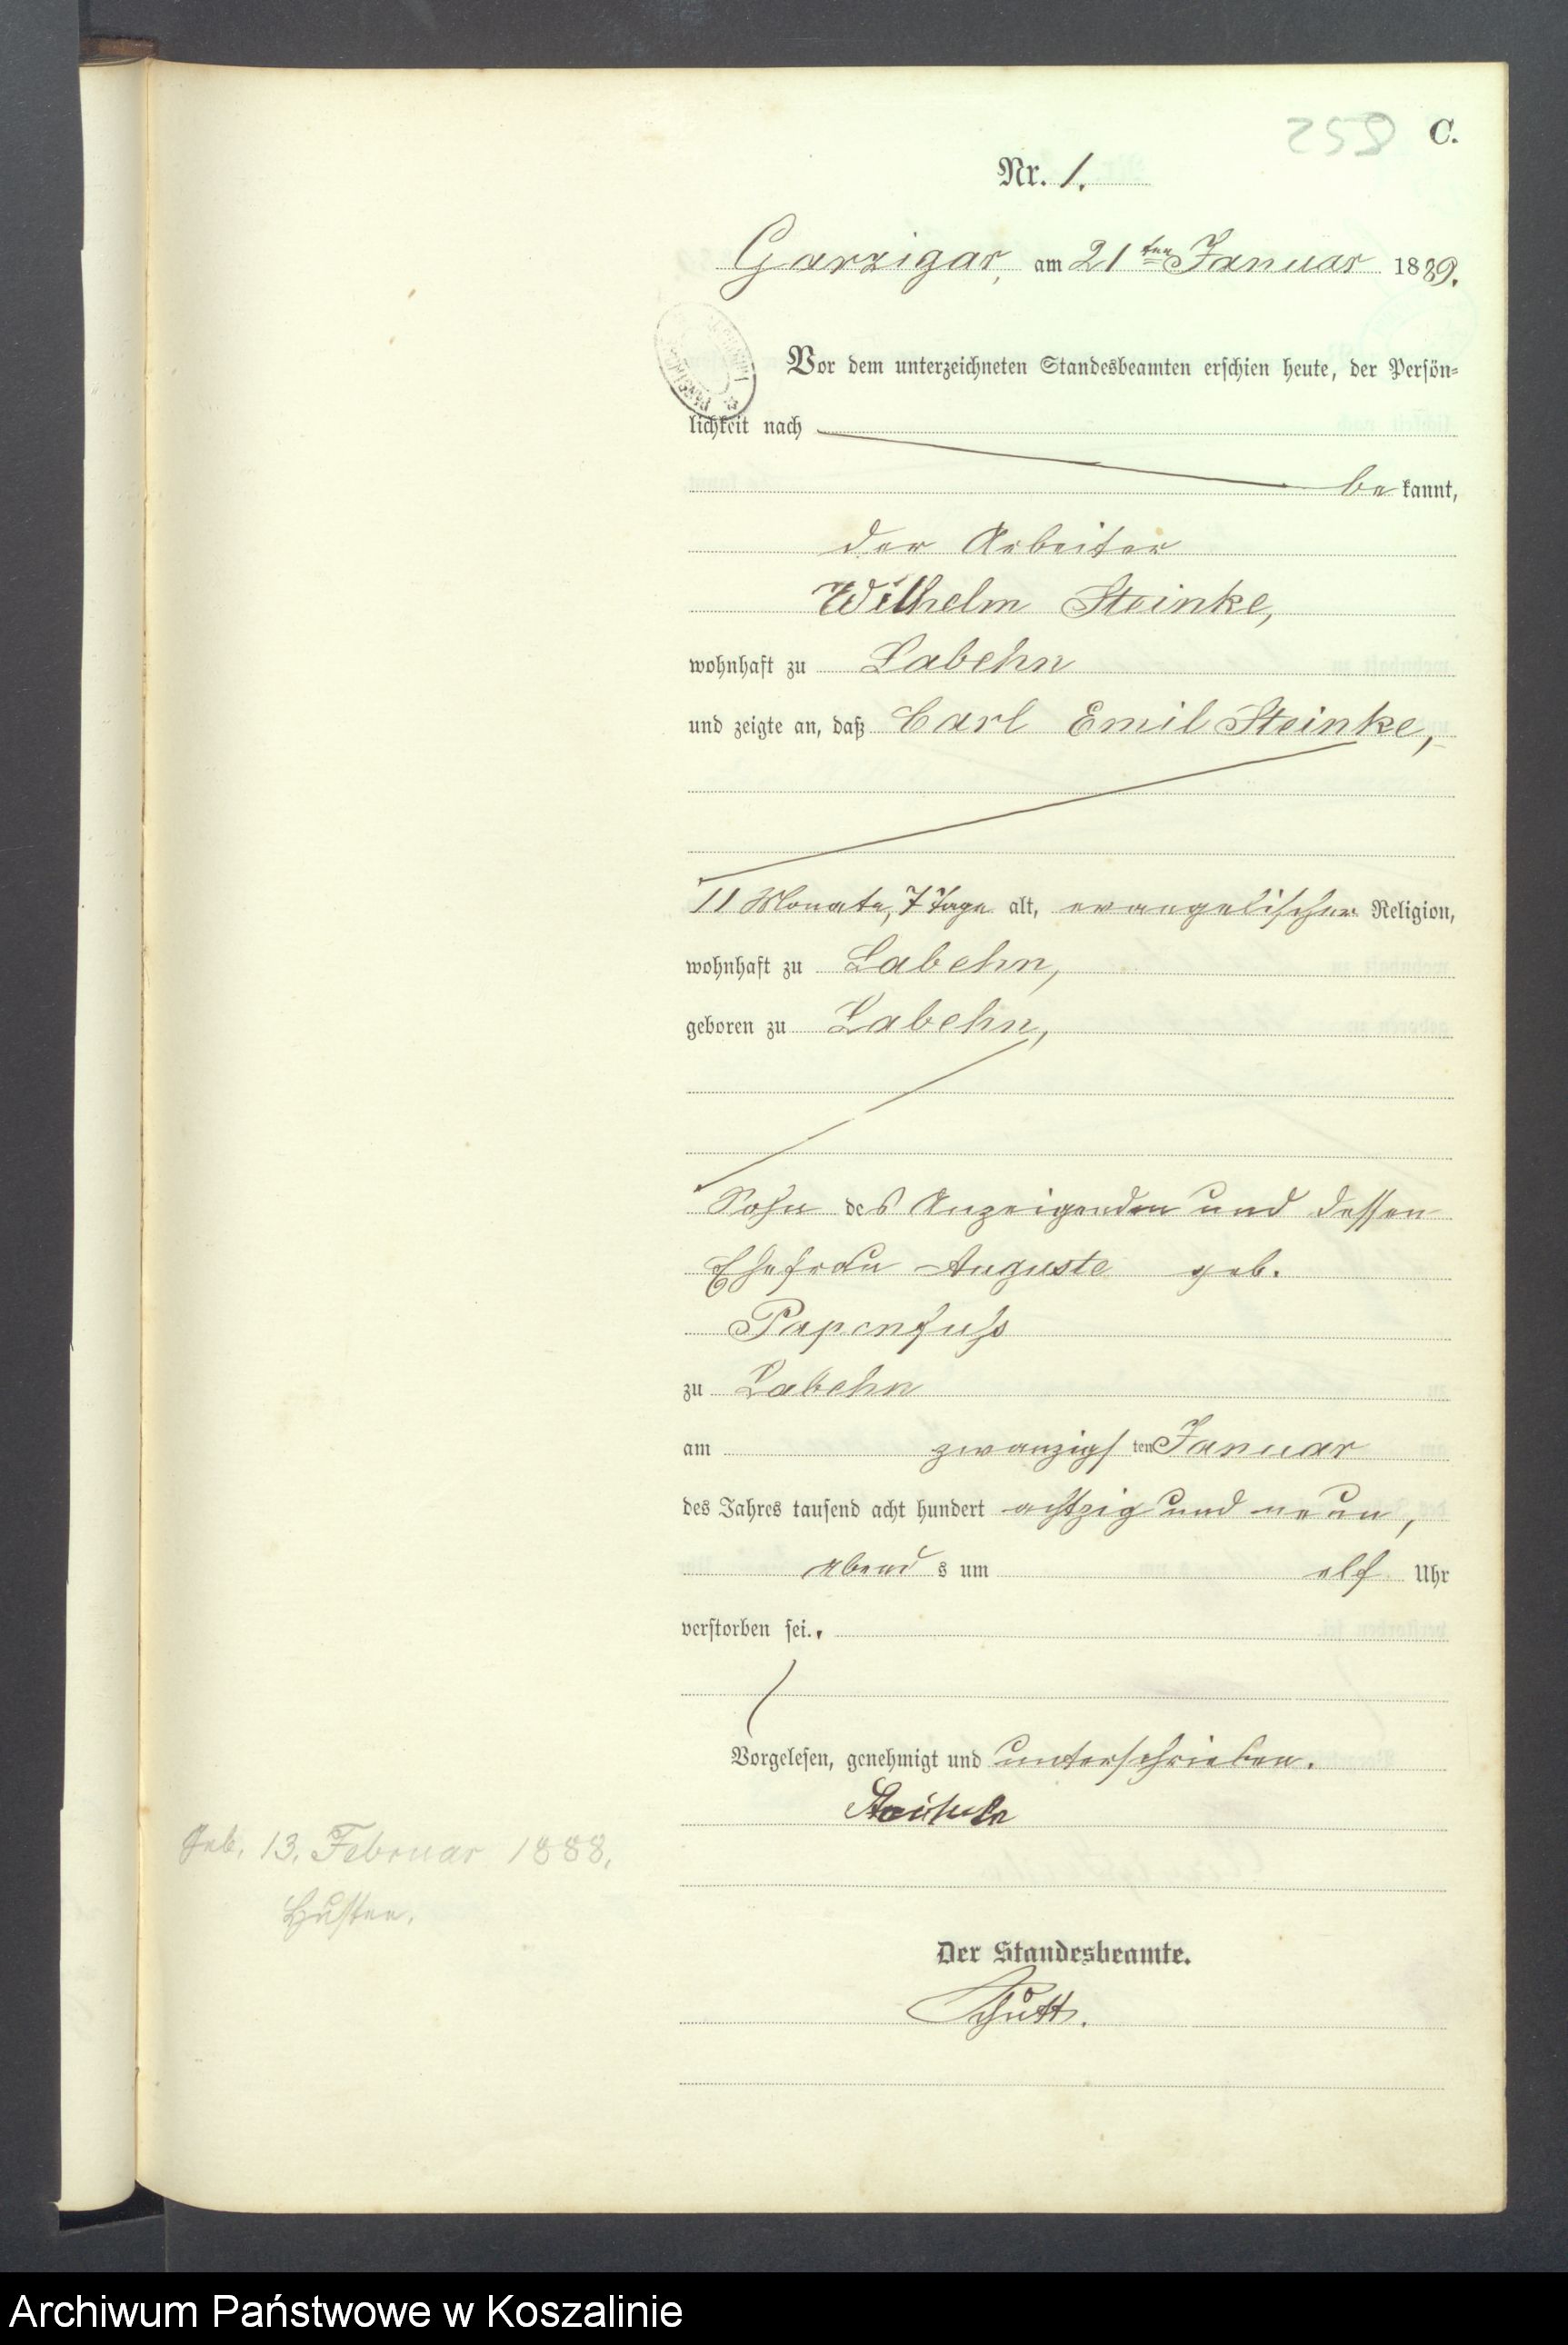 C.
Nr. 1.
Garzigar, am 21ten Januar 1889.
Vor dem unterzeichneten Standesbeamten erschien heute, der Persön=
lichkeit nach
be kannt,
der Arbeiter
Wilhelm Steinke,
wohnhaft zu Labehn
und zeigte an, daß Carl Emil Steinke,
11 Monate, 7 Tage alt, evangelischer Religion,
wohnhaft zu Labehn,
geboren zu Labehn,
Sohn des Anzeigenden und dessen
Ehefrau Auguste geb.
Papenfuß
zu Labehn
am zwanzigsten Januar
des Jahres tausend acht hundert achtzig und neun,
abends um elf Uhr
verstorben sei.
Vorgelesen, genehmigt und unterschrieben.
Steinke
Geb. 13. Februar 1888.
Husten.
Der Standesbeamte.
Schütt.
Archiwum Państwowe w Koszalinie